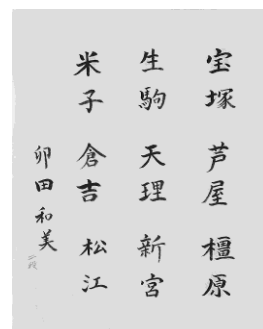 宝塚 芦屋 橿原
生駒 天理 新宮
米子 倉吉 松江
卯田和美